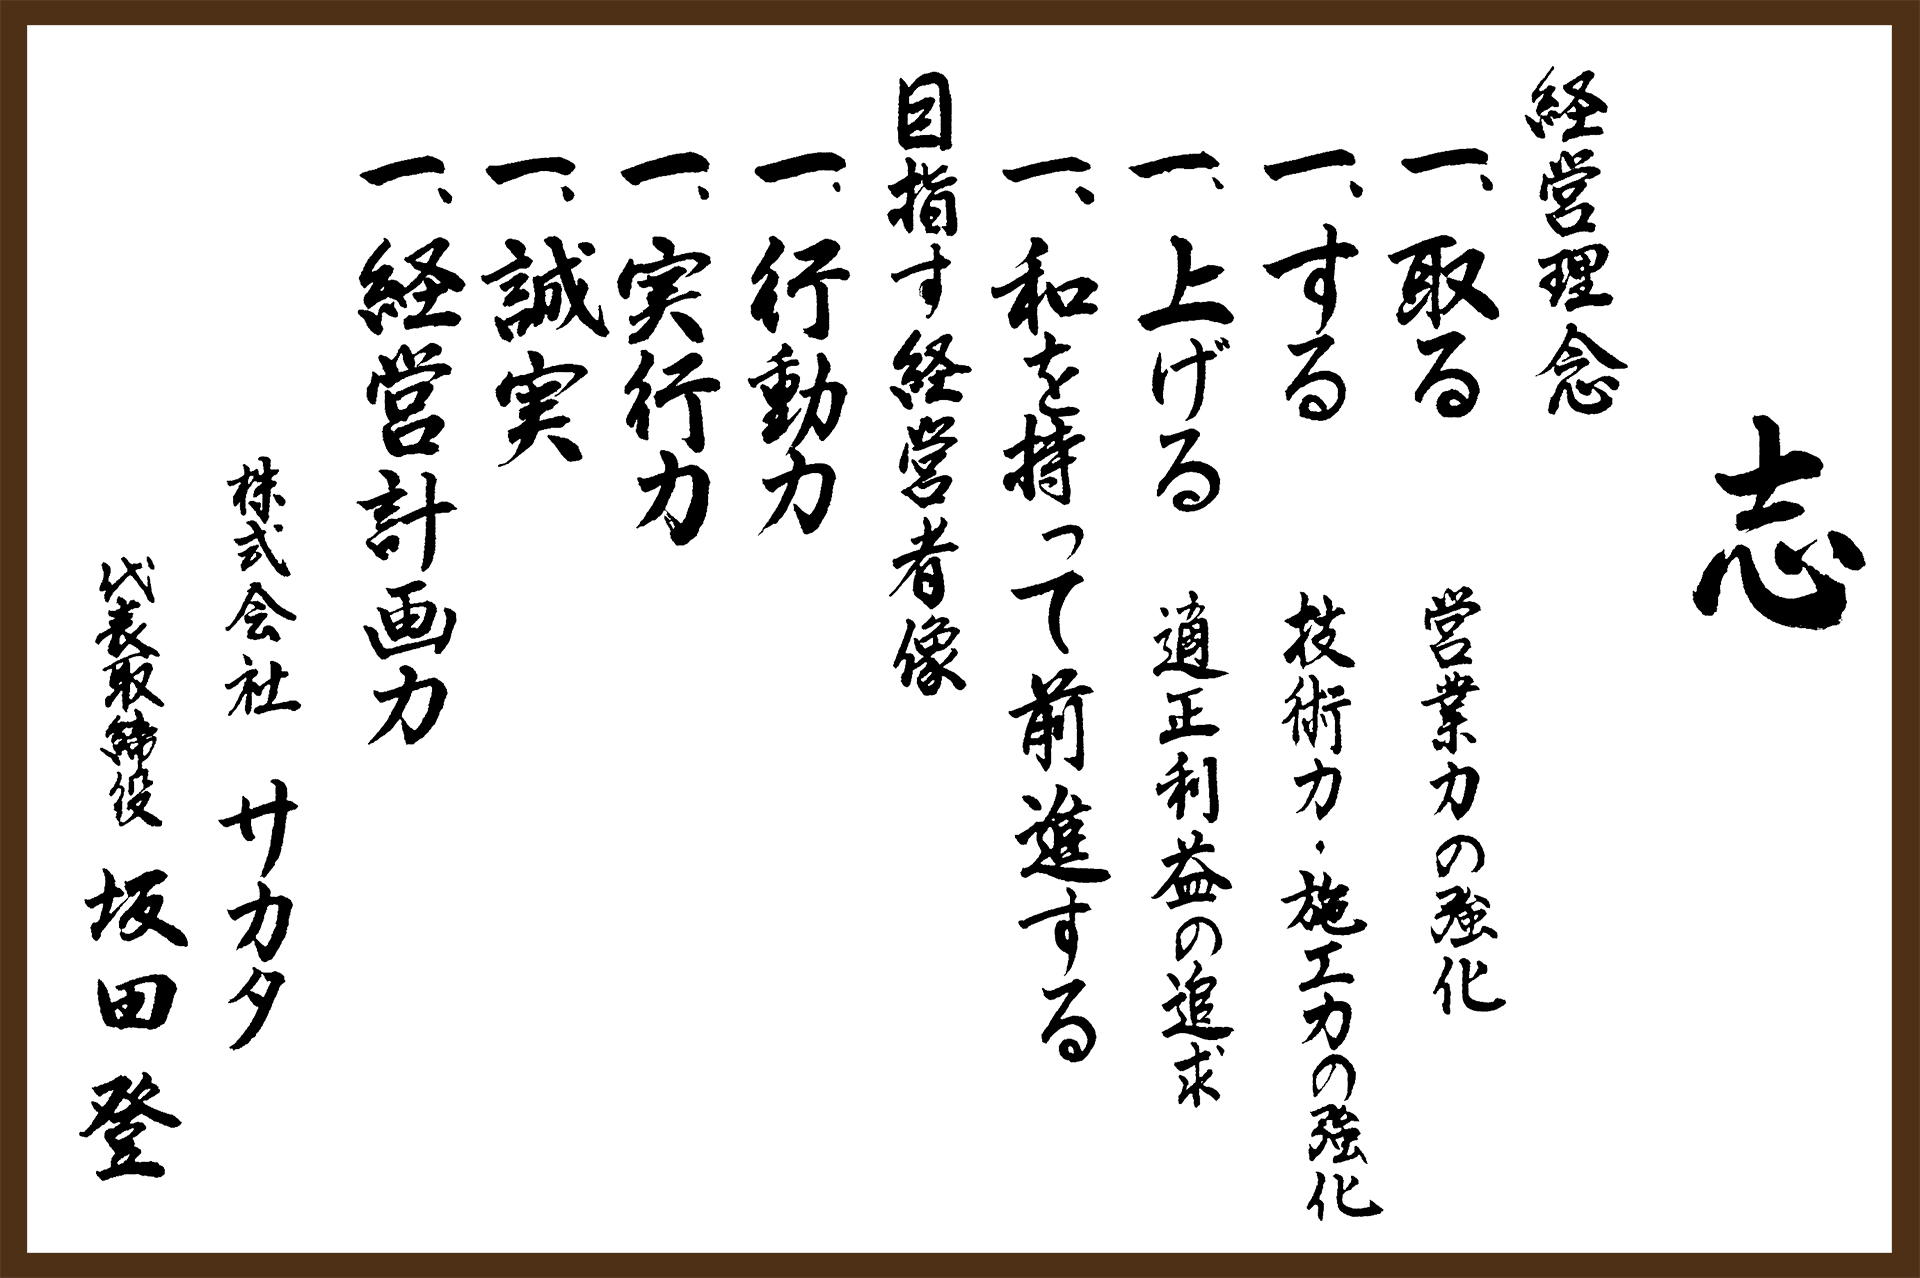 志
経営理念
一、取る 営業力の強化
一、する 技術力・施工力の強化
一、上げる 適正利益の追求
一、和を持って前進する
目指す経営者像
一、行動力
一、実行力
一、誠実
一、経営計画力
株式会社 サカタ
代表取締役 坂田登